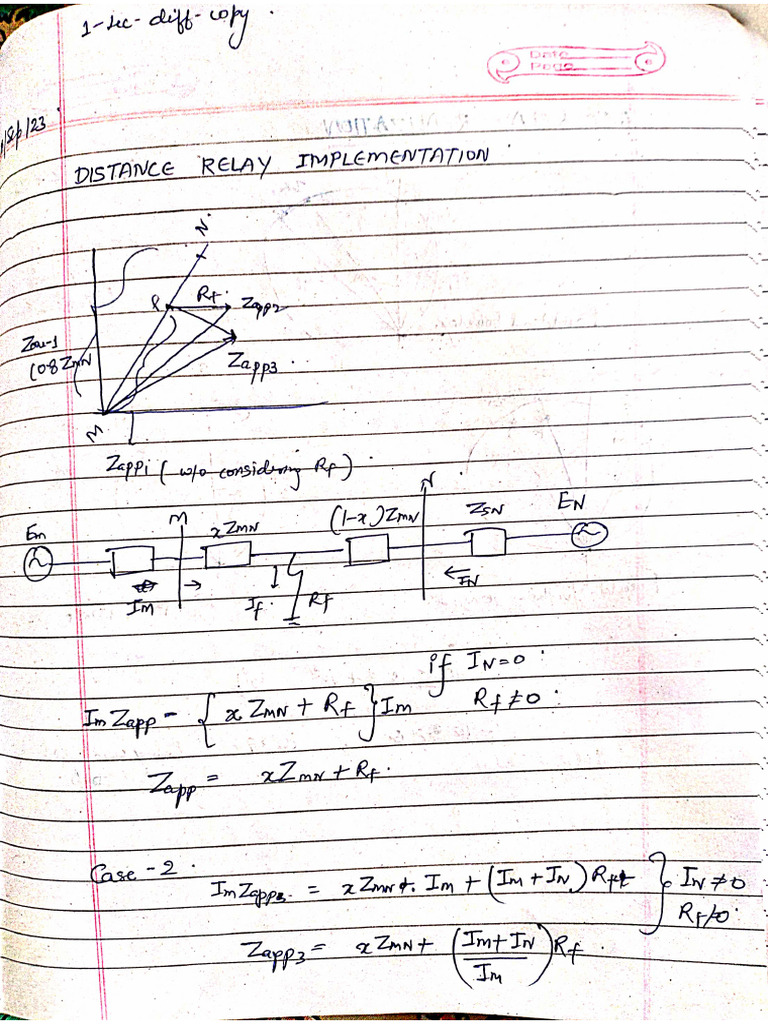 1-sec-diff-copy.
Date
Page
/Sep/23
DISTANCE RELAY IMPLEMENTATION
N
R Rf. Zapp2
0.8 ZMN
Zapp3.
M
Zapp1 (w/o considering Rf).
Em M xZMN (1-x)ZMN N ZSN EN
IM If. Rf IN
if IN=0
ImZapp = {xZMN + Rf}Im Rf≠0.
Zapp = xZMN+Rf.
Case-2.
ImZapp3 = xZMN. Im + (Im+IN)Rf } IN≠0
Rf≠0.
Zapp3 = xZMN+ (Im+IN/Im)Rf.